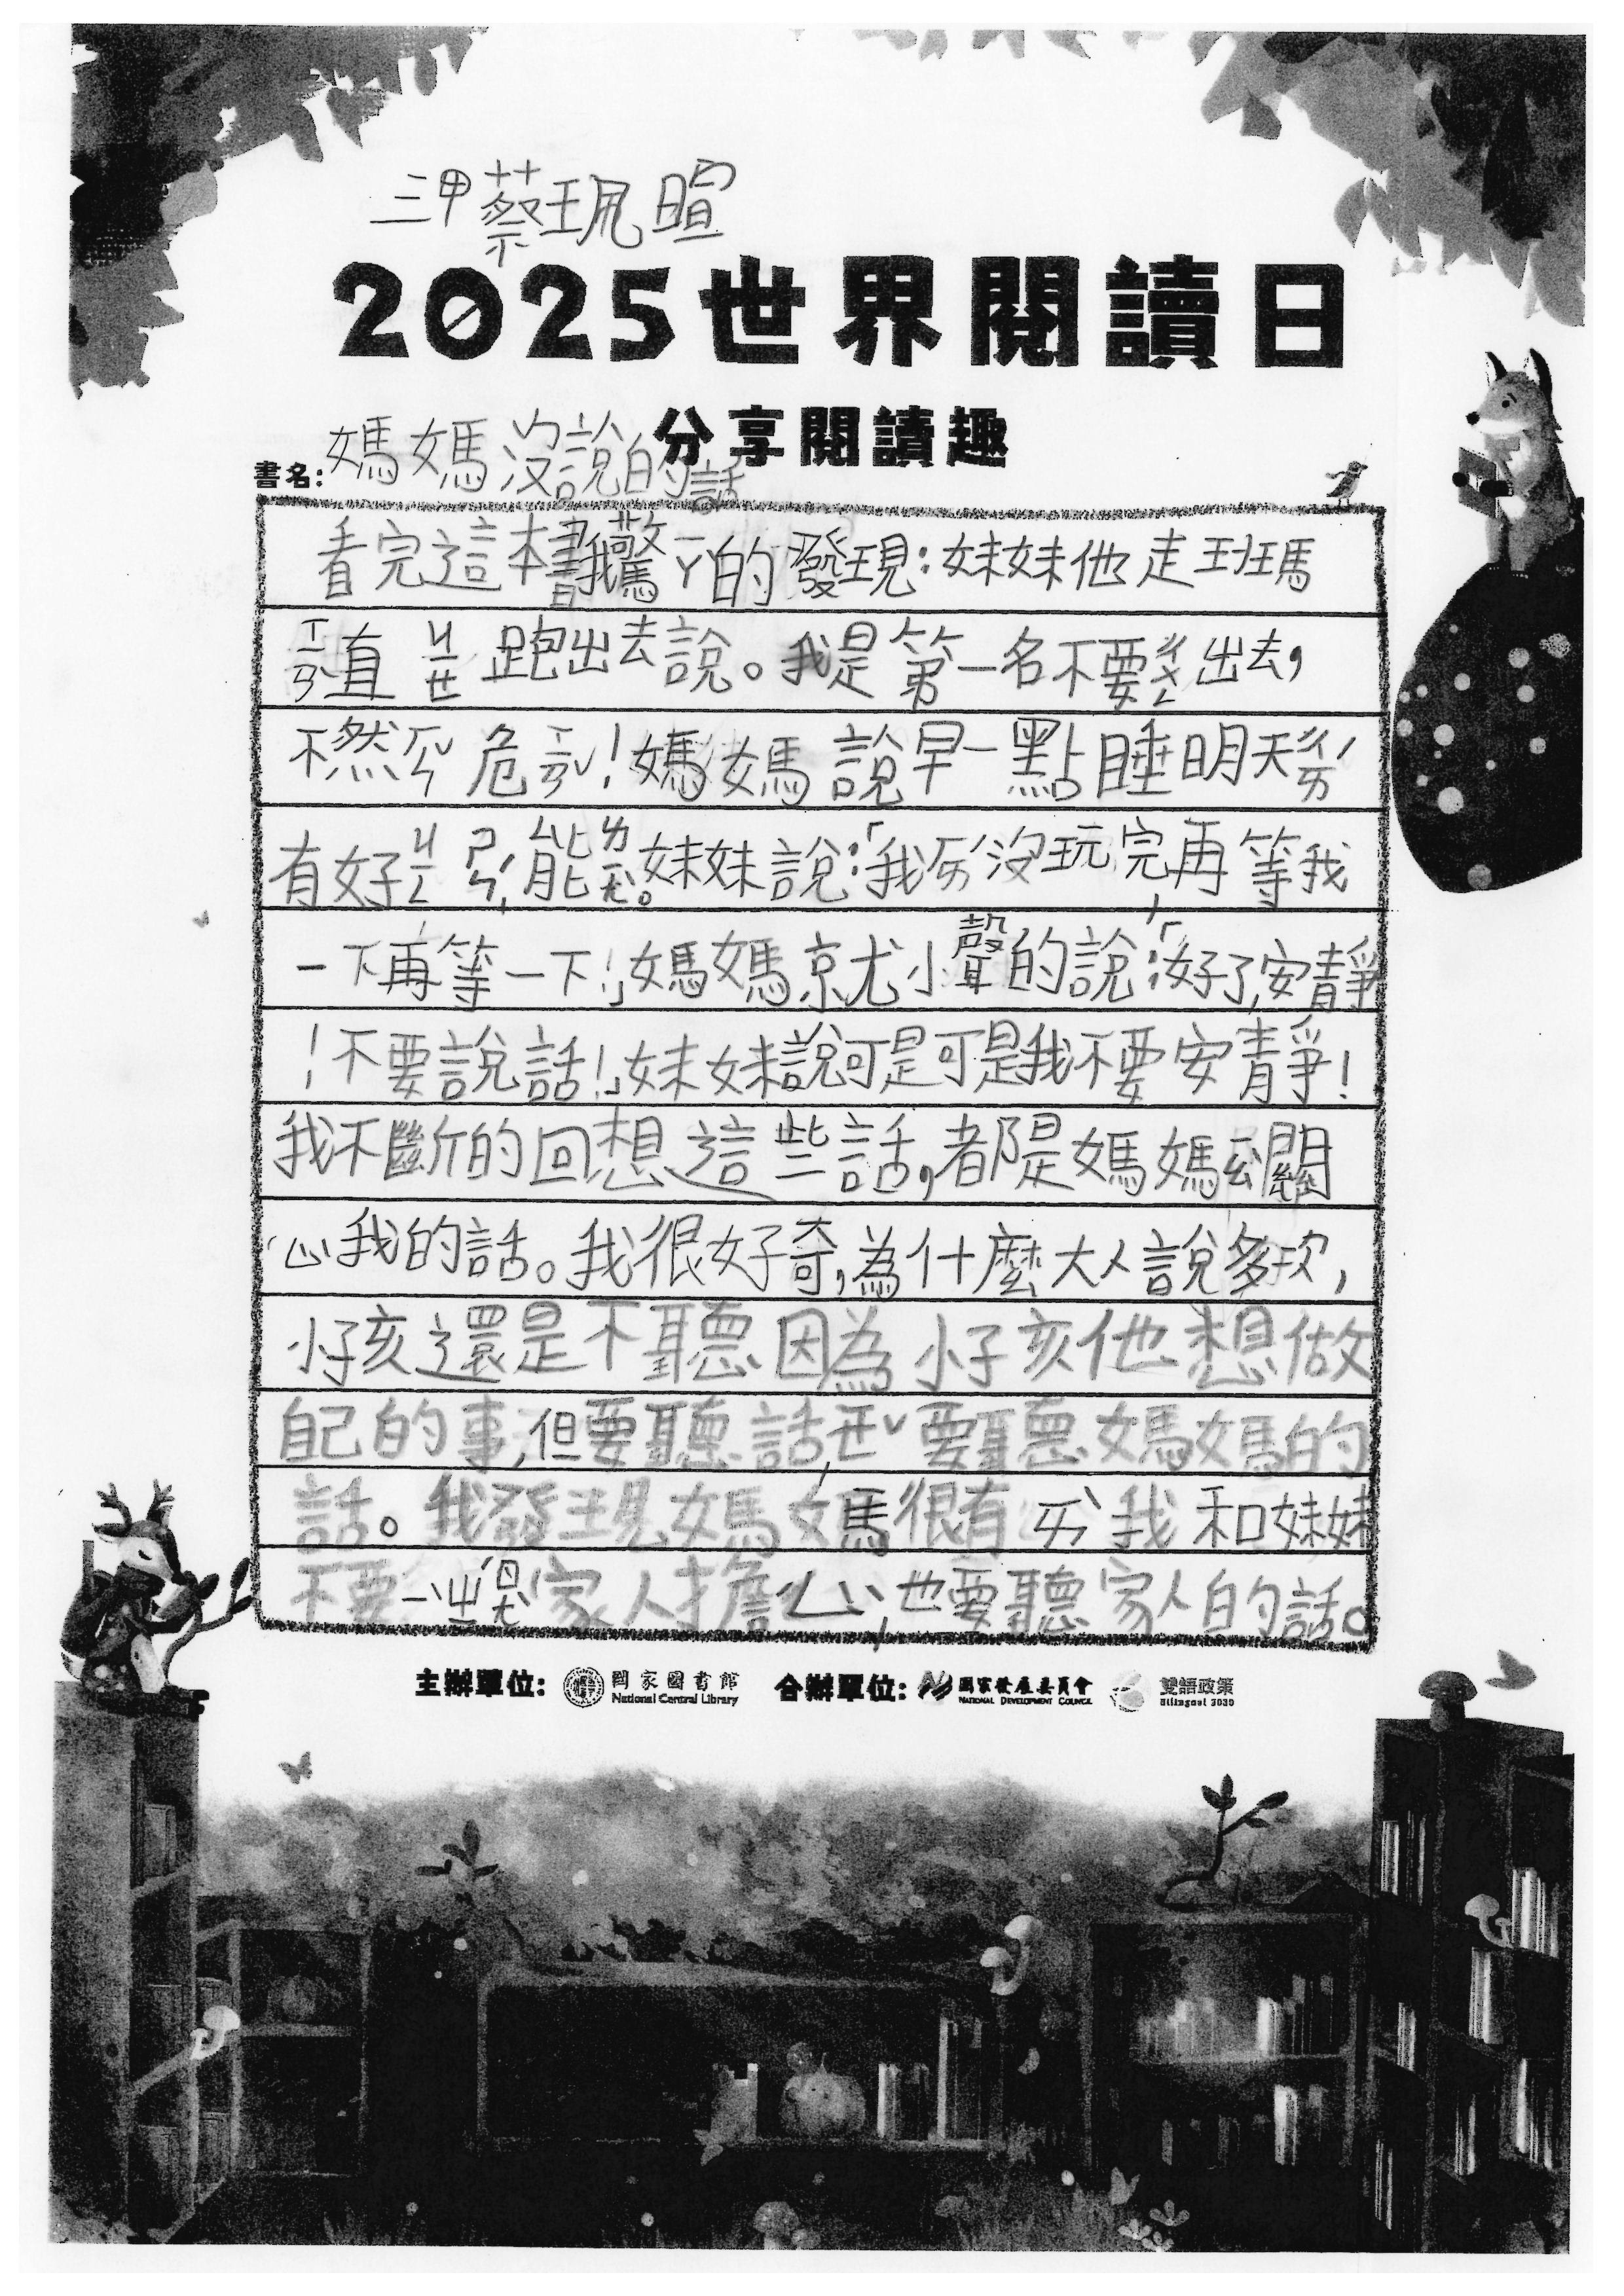 三甲 蔡珮暄
2025世界閱讀日
分享閱讀趣
書名:媽媽沒說的話
看完這本書我驚ㄧㄚ的發現:妹妹他走斑馬
ㄒㄧㄢ直ㄐㄧㄝ跑出去說。我是第一名不要ㄔㄨㄥ出去,
不然ㄏㄣˇ危ㄒㄧㄢˇ!媽媽說早一點睡明天ㄘㄞˊ
有好ㄐㄧㄥ ㄕㄣˊ,能ㄌㄧ。妹妹說:「我ㄏㄞˊ沒玩完,再等我
一下再等一下!」媽媽就小聲的說:「好了,安靜
!不要說話!」妹妹說可是可是我不要安靜!
我不斷的回想這些話,都是媽媽 關
心我的話。我很好奇,為什麼大人說多次,
小孩還是不聽因為小孩他想做
自己的事,但要聽話,ㄧㄝˇ要聽媽媽的
話。我發現媽媽很有ㄞˋ我和妹妹
不要一 家人擔心,也要聽家人的話。
主辦單位: 國家圖書館 National Central Library 合辦單位: 國家發展委員會 NATIONAL DEVELOPMENT COUNCIL 雙語政策 Bilingual 2030